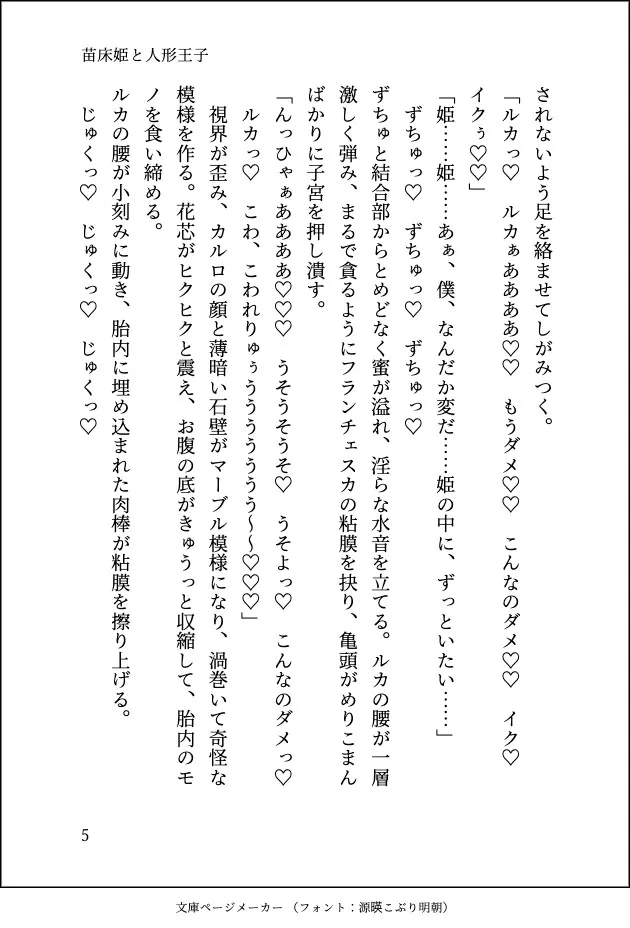 苗床姫と人形王子
されないよう足を絡ませてしがみつく。
「ルカっ♡　ルカぁああああ♡♡　もうダメ♡♡　こんなのダメ♡♡　イク♡
イクぅ♡♡」
「姫……姫……あぁ、僕、なんだか変だ……姫の中に、ずっといたい……」
ずちゅっ♡　ずちゅっ♡　ずちゅっ♡
ずちゅと結合部からとめどなく蜜が溢れ、淫らな水音を立てる。ルカの腰が一層
激しく弾み、まるで貪るようにフランチェスカの粘膜を抉り、亀頭がめりこまん
ばかりに子宮を押し潰す。
「んっひゃぁああああ♡♡♡　うそうそうそ♡　うそよっ♡　こんなのダメっ♡
ルカっ♡　こわ、こわれりゅぅうううううう～～♡♡♡」
視界が歪み、カルロの顔と薄暗い石壁がマーブル模様になり、渦巻いて奇怪な
模様を作る。花芯がヒクヒクと震え、お腹の底がきゅうっと収縮して、胎内のモ
ノを食い締める。
ルカの腰が小刻みに動き、胎内に埋め込まれた肉棒が粘膜を擦り上げる。
じゅくっ♡　じゅくっ♡　じゅくっ♡
5
文庫ページメーカー（フォント：源暎こぶり明朝）